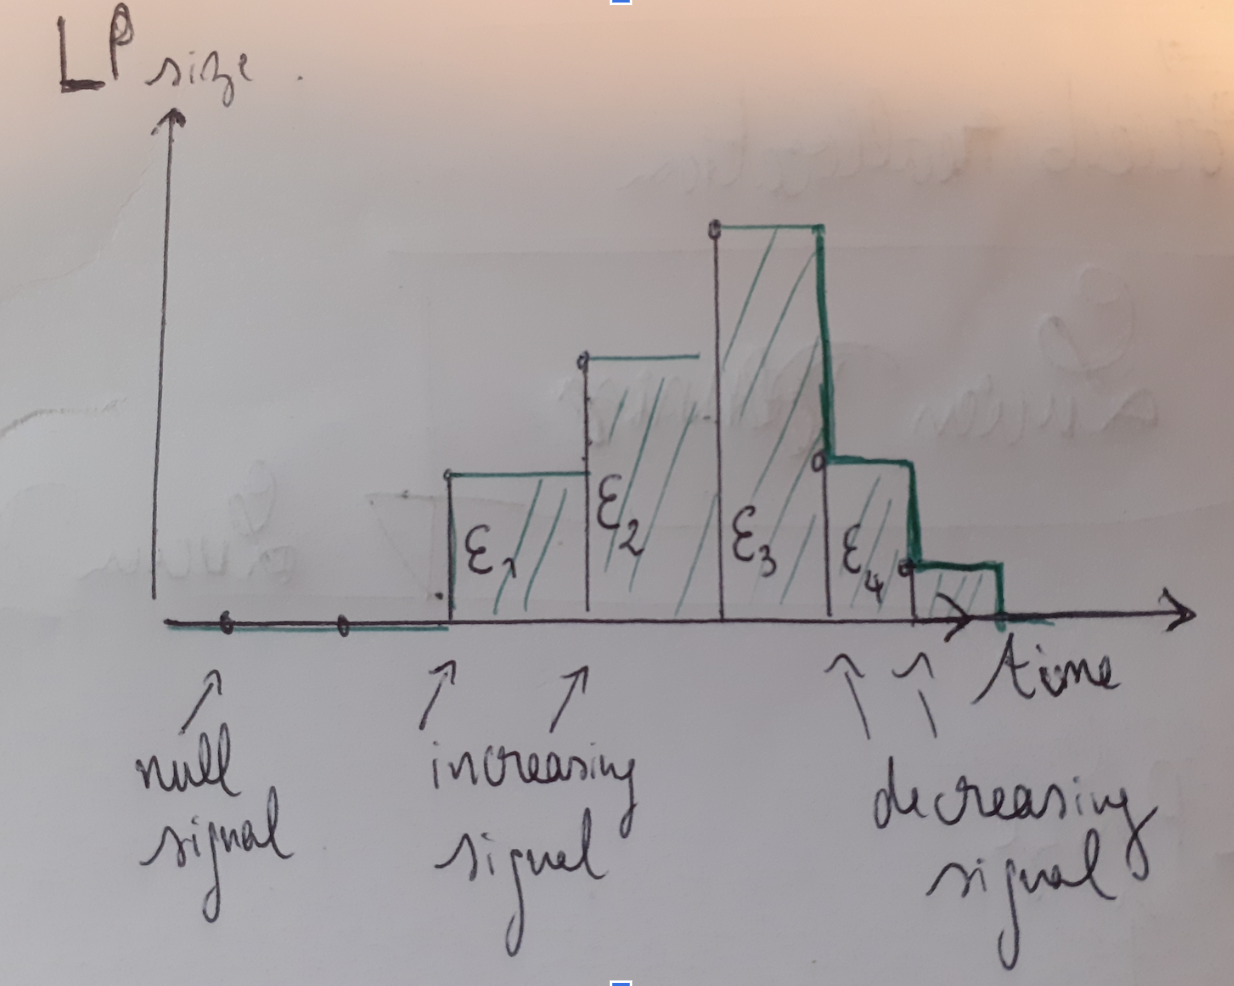 LP size
ε1
ε2
ε3
ε4
time
null
signal
increasing
signal
decreasing
signal